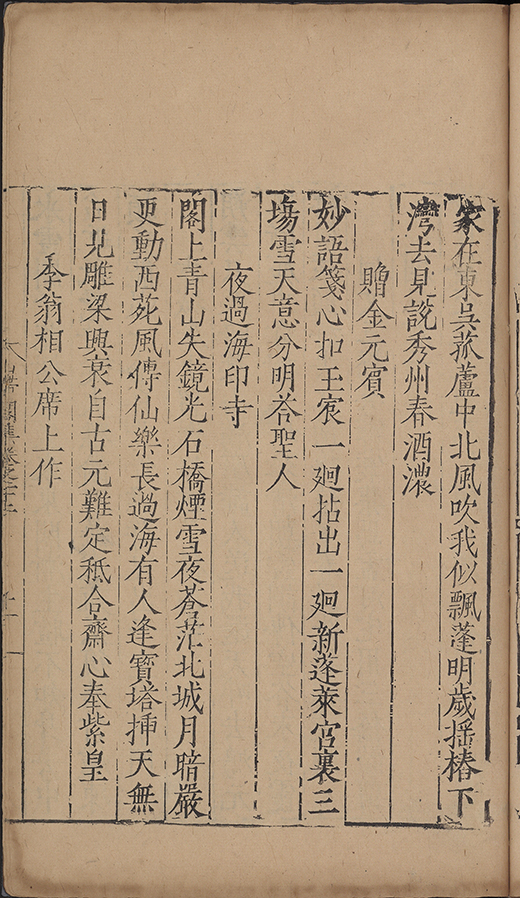 家在東吳菰蘆中北風吹我似飄蓬明歲揺樁下
灣去見說秀州春酒濃
贈金元賓
妙語箋心扣王宸一廻拈出一廻新蓬萊宮裏三
塲雪天意分明荅聖人
夜過海印寺
閣上青山失鏡光石橋煙雪夜蒼茫北城月暗嚴
更動西苑風傳仙樂長過海有人逢寶塔揷天無
日見雕梁興衰自古元難定秪合齋心奉紫皇
季翁相公席上作